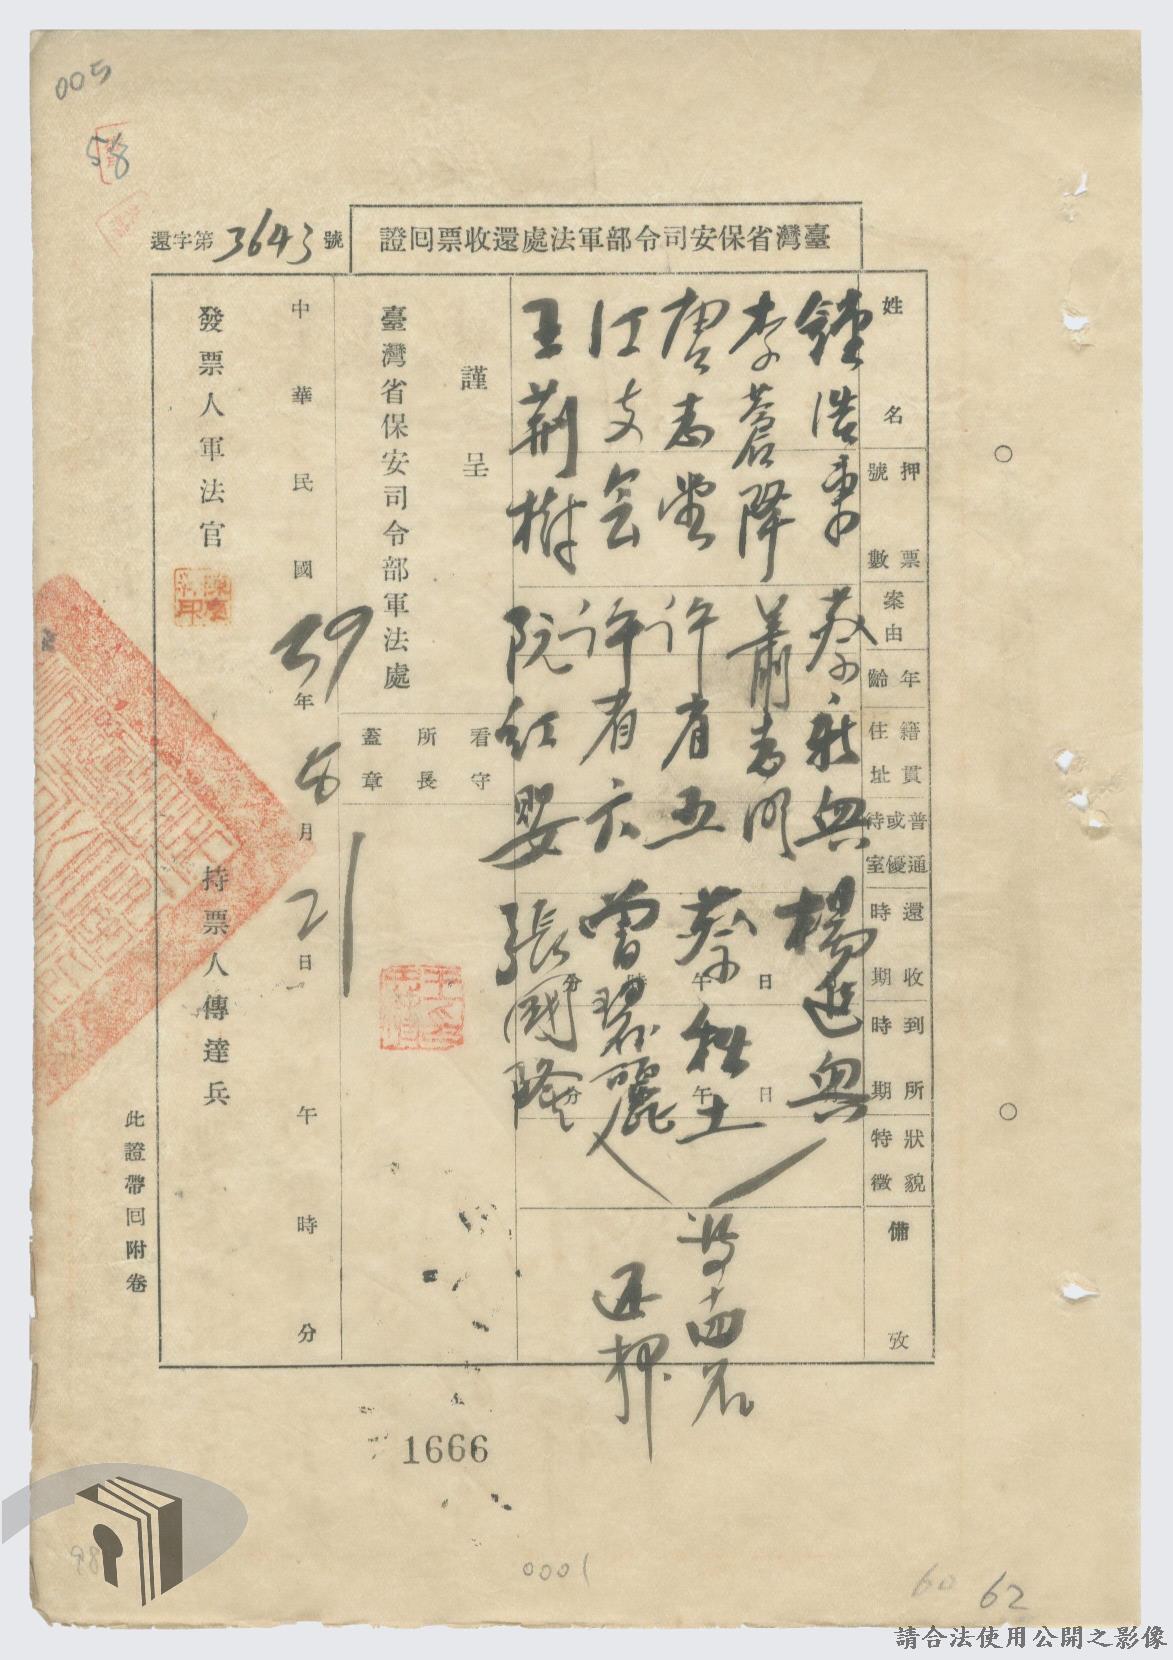 005
58
臺灣省保安司令部軍法處還收票回證
還字第3643號
姓名
押票號數
案由
年齡
籍貫住址
普通或優待室
還收時期
到所時期
狀貌特徵
備攷
鍾浩東 蔡新興 楊進興
李蒼降 蕭志明
唐志堂 許省五 蔡秋土
江支会 許省六 曾碧麗
王荊樹 阮紅嬰 張國隆
日午時分
日午分
等十四名
還押
謹呈
臺灣省保安司令部軍法處
看守所長蓋章
中華民國39年8月21日午時分
發票人軍法官
持票人傳達兵
此證帶回附卷
1666
98
0001
60
62
請合法使用公開之影像